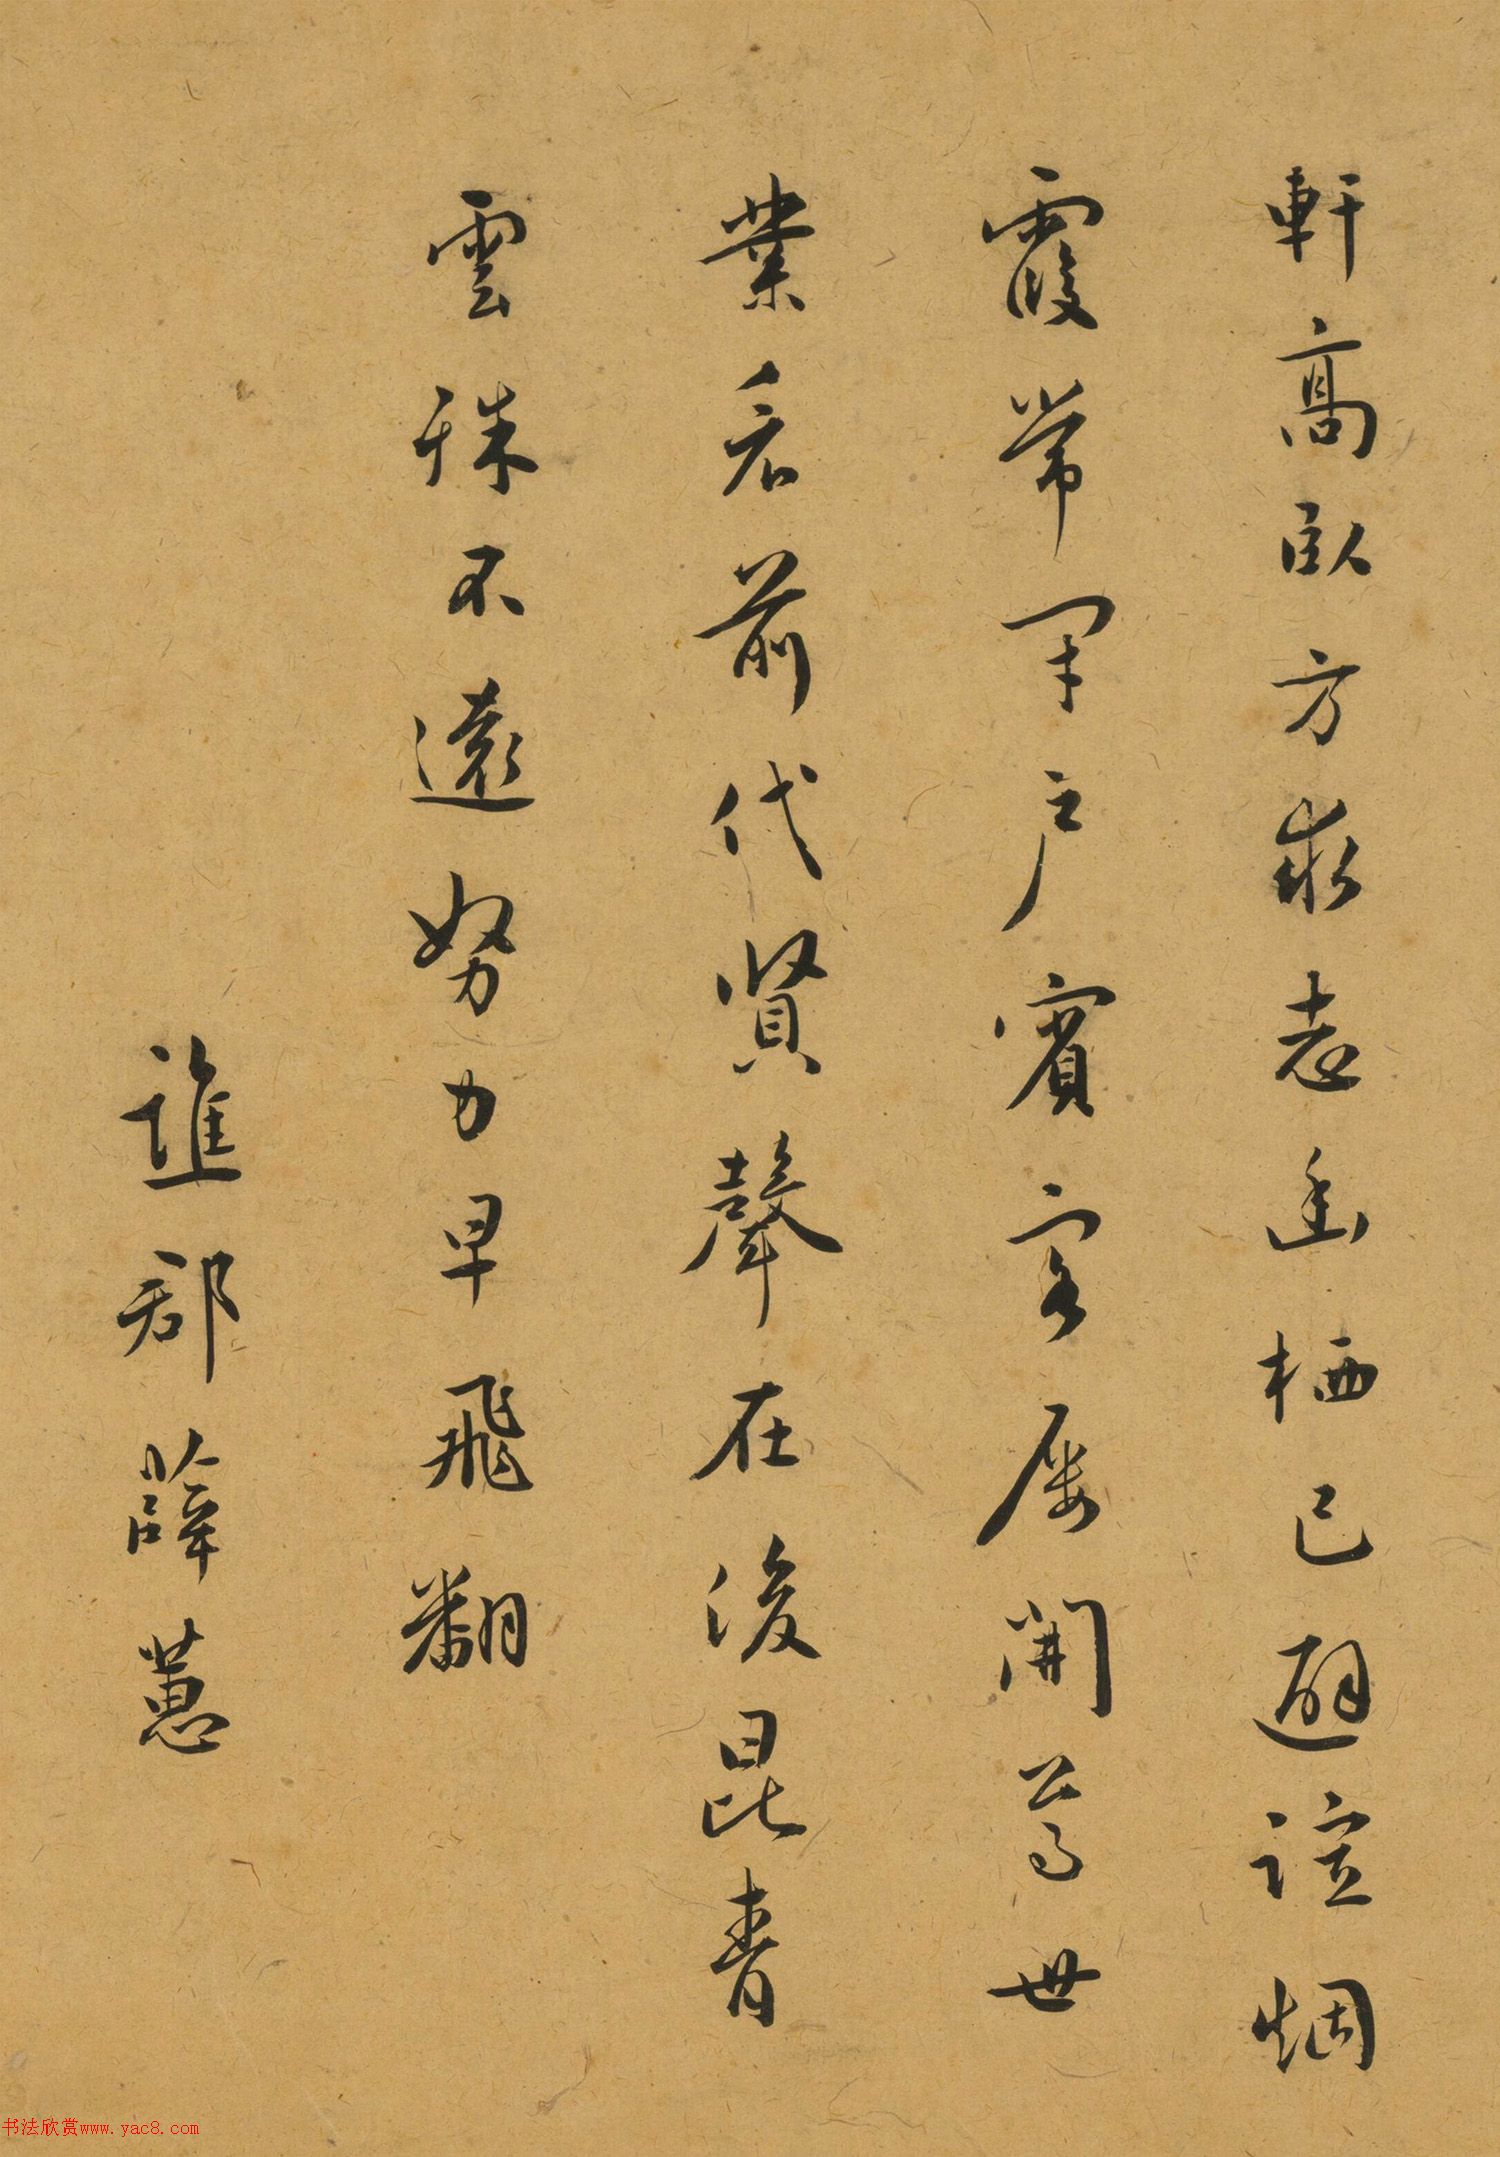 軒高臥方求志幽栖已避諠烟
霞常閉户賓客屢開尊世
業看前代賢聲在後昆青
雲殊不遠努力早飛翻
譙郡薛蕙
书法欣赏www.yac8.com